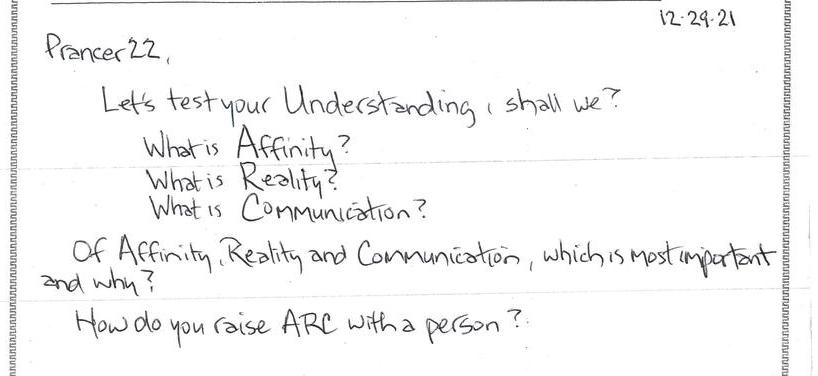 12-29-21
Prancer22,
Let's test your Understanding, shall we?
What is Affinity?
What is Reality?
What is Communication?
Of Affinity, Reality and Communication, which is most important
and why?
How do you raise ARC with a person?